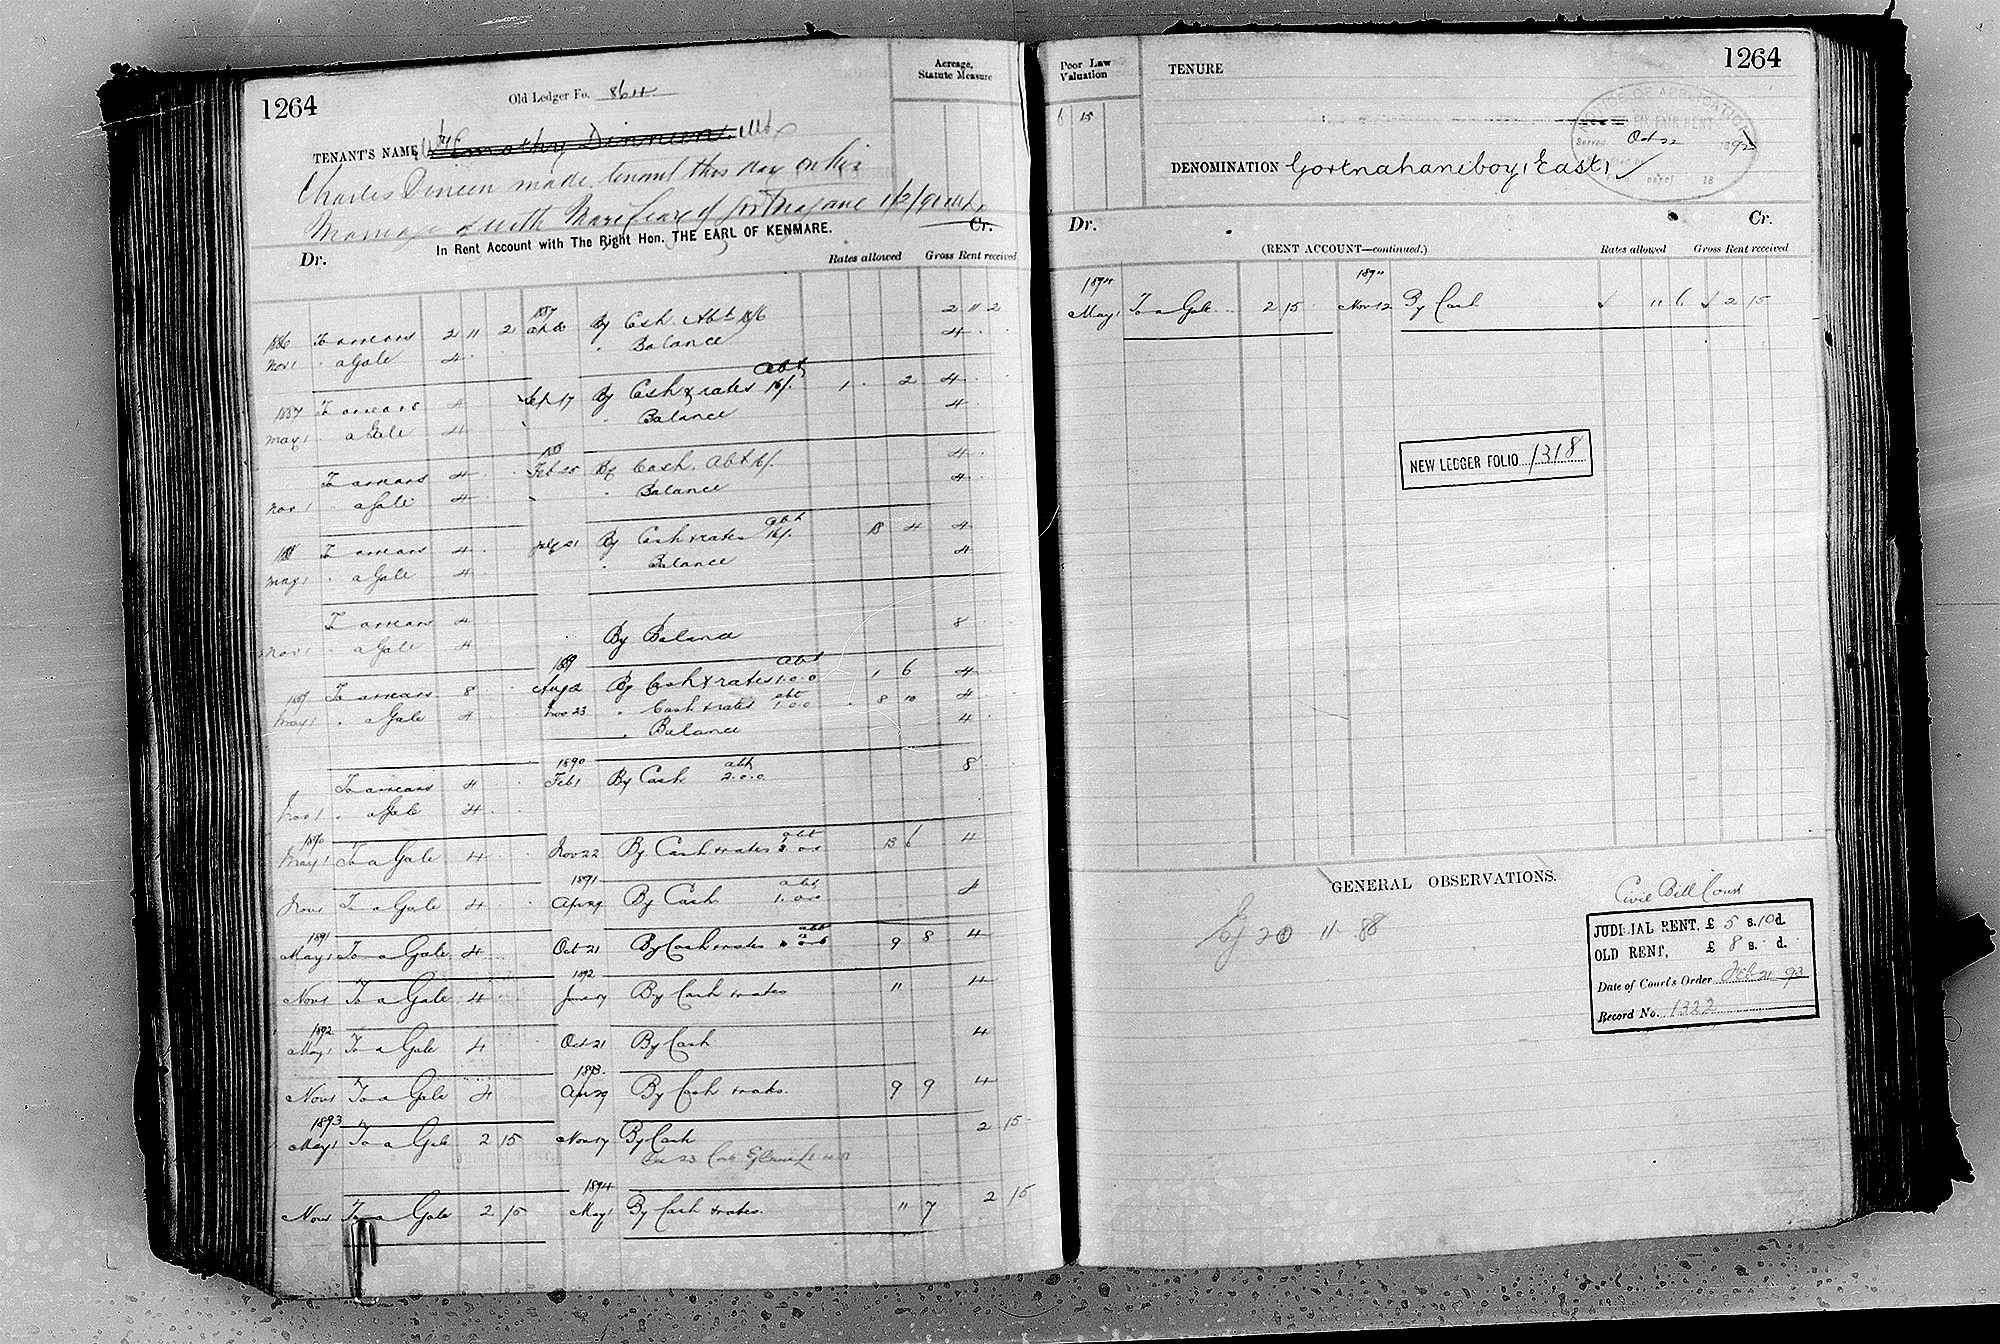 1264
Old Ledger Fo. 864
Acreage,
Statute Measure
TENANT'S NAME Timothy Dinneen
Charles Dineen made tenant this day on his
Marriage with Mary Leary of 1/2/91
In Rent Account with The Right Hon. THE EARL OF KENMARE.
Dr. Cr.
Rates allowed Gross Rent received
1887
1886 To arrears 2 11 2 By Cash Abt 16/6 2 11 2
Nov 1 " a Gale 4 " Balance 4
abt
1887 To arrears 4 Sep 17 By Cash & rates 16/. 1 . 2 4
May 1 " a Gale 4 " Balance 4
1888
To arrears 4 Feb 25 By Cash. abt 16/. 4
Nov 1 " a Gale 4 " Balance 4
abt
1888 To arrears 4 July 21 By Cash & rates 16/. 13 4 4
May 1 " a Gale 4 " Balance 4
To arrears 4
Nov 1 " a Gale 4 By Balance 8
1889 abt
1889 To arrears 8 Aug 2 By Cash & rates 1.0.0 1 6 4
May 1 " a Gale 4 Nov 23 " Cash & rates abt 1.0.0 8 10 4
" Balance 4
1890 abt
To arrears 4 Feb 1 By Cash 2.0.0 8
Nov 1 " a Gale 4
1890 abt
May 1 To a Gale 4 Nov 22 By Cash & rates 13 6 4
1891 abt
Nov 1 To a Gale 4 Apr 29 By Cash 1.0.0 4
1891 abt
May 1 To a Gale 4 Oct 21 By Cash & rates 9 8 4
1892
Nov 1 To a Gale 4 By Cash & rates 11 4
1892
May 1 To a Gale 4 Oct 21 By Cash 4
1893
Nov 1 To a Gale 4 Apr 29 By Cash & rates. 9 9 4
1893
May 1 To a Gale 2 15 Nov 17 By Cash 2 15
1894
Nov 1 To a Gale 2 15 May 1 By Cash & rates. " 7 2 15
Poor Law
Valuation
TENURE
1264
6 15
NOTICE OF APPLICATION
FAIR RENT
Served Oct 22 1892
DENOMINATION Gortnahaneboy, East,
Dr. Cr.
(RENT ACCOUNT—continued.) Rates allowed Gross Rent received
1894 1894
May 1 To a Gale 2 15 Nov 12 By Cash " 6 2 15
NEW LEDGER FOLIO 1318
GENERAL OBSERVATIONS.
Ej 20 11 88
Civil Bill Court
JUDICIAL RENT, £ 5 s. 10 d.
OLD RENT, £ 8 s. d.
Date of Court's Order Feb 21 93
Record No. 1322